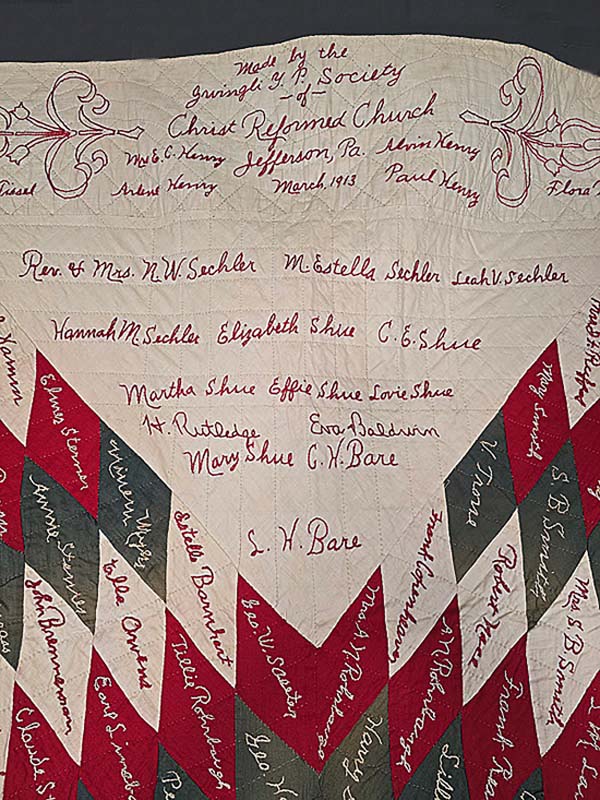 Made by the
Zwingli Y. P. Society
-of-
Christ Reformed Church
Mrs E. C. Henry Jefferson, Pa. Alvin Henry
Arlene Henry March, 1913 Paul Henry
Flora
Rev. & Mrs. N. W. Sechler M. Estella Sechler Leah V. Sechler
Hannah M. Sechler Elizabeth Shue C. E. Shue
Martha Shue Effie Shue Lovie Shue
H. Rutledge Eva Baldwin
Mary Shue C. H. Bare
S. H. Bare
Elmer Sterner
Annie Sterner
John Brenneman
Ella Owens
Estella Barnhart
Tillie Rohrbaugh
Geo. V. Sweitzer
Mrs A. Y. Rohrbaugh
A. Y. Rohrbaugh
V. Trone
Mary Smith
S B Smith
Mrs. S B Smith
Robert
Frank
Earl
Claude
Geo.
Harry